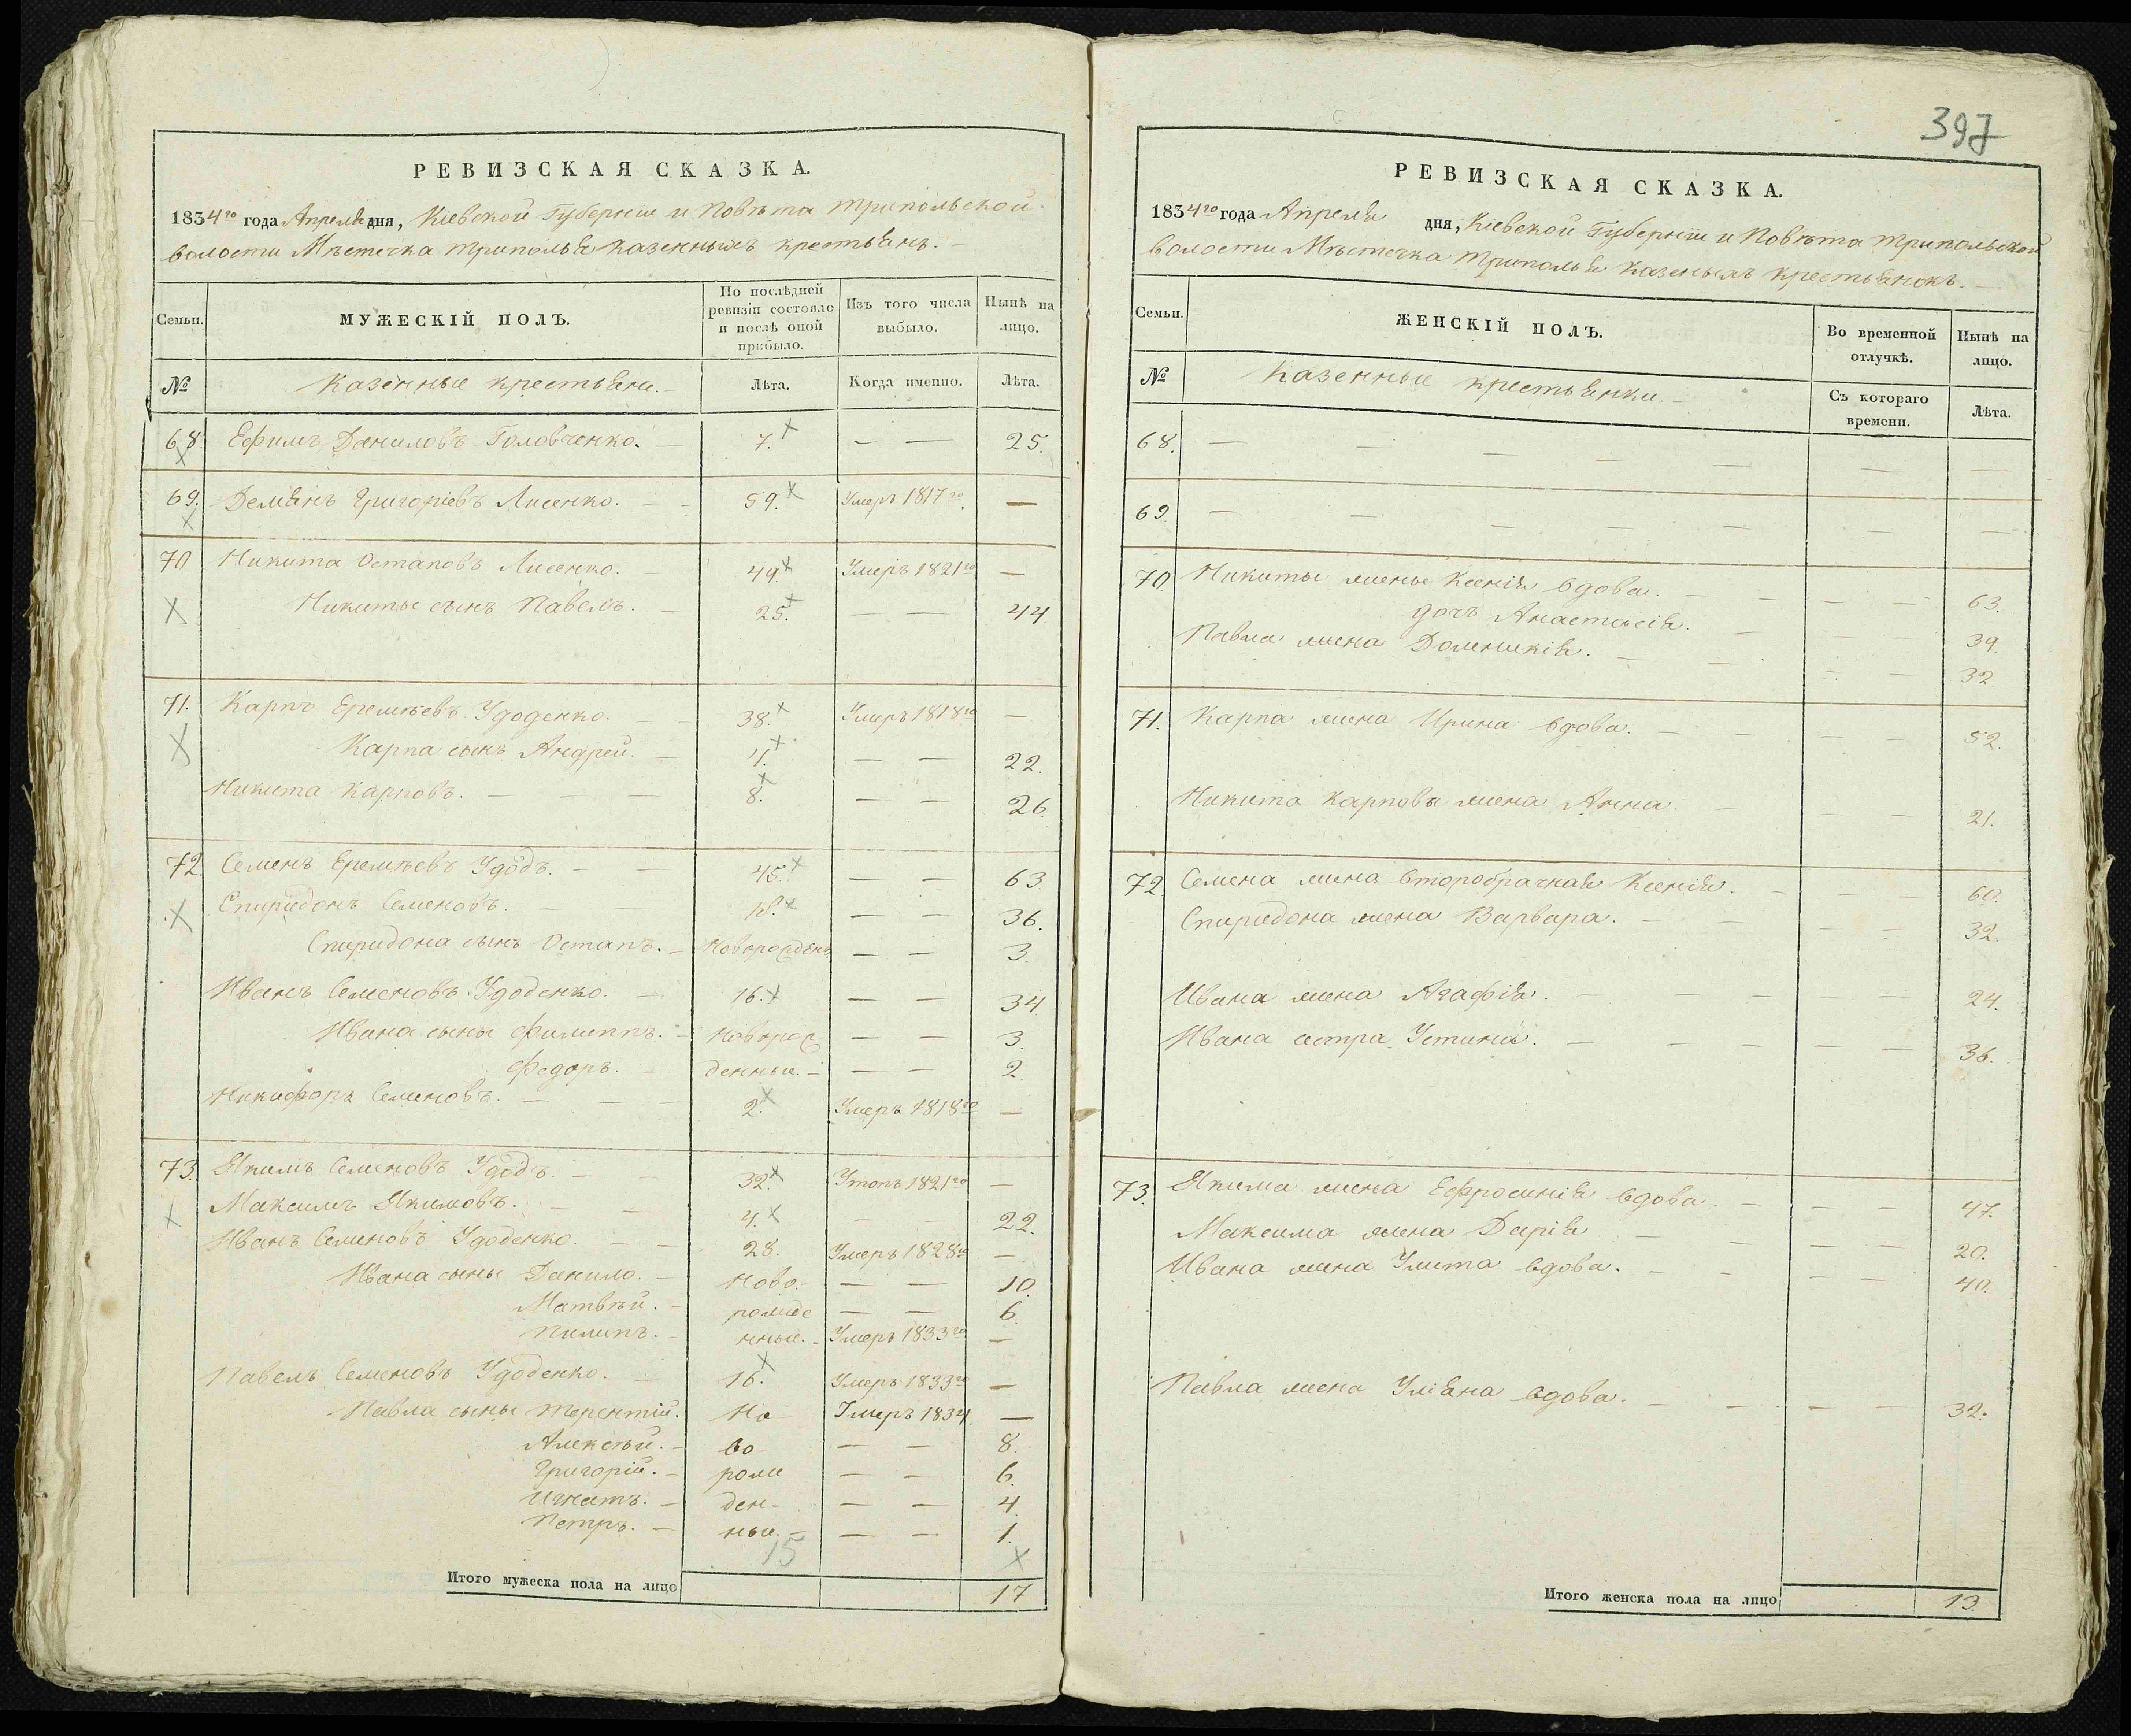 РЕВИЗСКАЯ СКАЗКА.
1834го года Апреля дня, Кіевской Губерніи и Повѣта Трипольской
волости Мѣстечка Триполья казенныхъ крестьянъ.
Семьи. МУЖЕСКІЙ ПОЛЪ. По послѣдней ревизіи состояло и послѣ оной прибыло. Изъ того числа выбыло. Нынѣ на лицо.
№ Казенные крестьяни. Лѣта. Когда именно. Лѣта.
68. Ефимъ Даниловъ Головченко. 7. — — 25.
69. Демянъ Григоріевъ Лисенко. 59. Умеръ 1817го. —
70 Никита Остаповъ Лисенко. 49. Умеръ 1821го —
Никиты сынъ Павелъ. 25. — — 44
71. Карпъ Еремѣевъ Удоденко. 38. Умеръ 1818го —
Карпа сынъ Андрей. 4. — — 22.
Никита Карповъ. 8. — — 26.
72. Семенъ Еремѣевъ Удодъ. 45. — — 63.
Спиридонъ Семеновъ. 18. — — 36.
Спиридона сынъ Остапъ. Новорожденъ — — 3.
Иванъ Семеновъ Удоденко. 16. — — 34
Ивана сыны Филиппъ. Новорож — — 3.
Федоръ. денныи. — — 2
Никифоръ Семеновъ. 2. Умеръ 1818го —
73. Якимъ Семеновъ Удодъ. 32. Утопъ 1821го —
Максимъ Якимовъ. 4. — — 22.
Иванъ Семеновъ Удоденко. 28. Умеръ 1828го —
Ивана сыны Данило. Ново- — — 10.
Матвѣй. рожде — — 6.
Пилипъ. нные. Умеръ 1833го —
Павелъ Семеновъ Удоденко. 16. Умеръ 1833го —
Павла сыны Терентій. Но Умеръ 1834 —
Алексѣй. во — — 8.
Григорій. рож — — 6.
Игнатъ. ден- — — 4.
Петръ. ные. — — 1.
15
Итого мужеска пола на лицо 17
397
РЕВИЗСКАЯ СКАЗКА.
1834го года Апреля дня, Кіевской Губерніи и Повѣта Трипольской
волости Мѣстечка Триполья Казеныхъ крестьянокъ.
Семьи. ЖЕНСКІЙ ПОЛЪ. Во временной отлучкѣ. Нынѣ на лицо.
№ Казенные крестьянки. Съ котораго времени. Лѣта.
68. — — — — — — —
69 — — — — — — —
70 Никиты жена Ксенія вдова. — — 63.
дочъ Анастасія. — — 39.
Павла жена Доминикія. — — 32.
71. Карпа жена Ирина вдова. — — 52.
Никита Карпова жена Анна. — — 21.
72 Семена жена второбрачная Ксенія. — — 60.
Спиридона жена Варвара. — — 32.
Ивана жена Агафія. — — 24.
Ивана сестра Устина. — — 36.
73. Якима жена Ефросинія вдова — — 47.
Максима жена Дарія — — 20.
Ивана жена Улита вдова. — — 40.
Павла жена Уліяна вдова. — — 32.
Итого женска пола на лицо 13